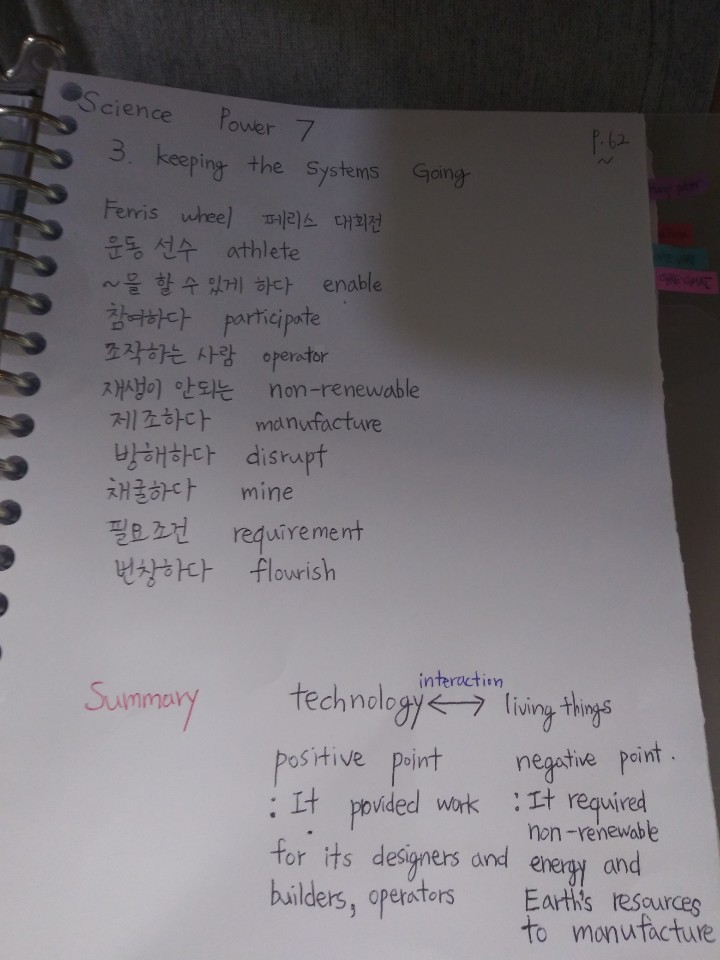 Science Power 7
P.62
~
3. keeping the systems Going
Ferris wheel 페리스 대회전
운동 선수 athlete
~을 할 수 있게 하다 enable
참여하다 participate
조작하는 사람 operator
재생이 안되는 non-renewable
제조하다 manufacture
방해하다 disrupt
채굴하다 mine
필요조건 requirement
번창하다 flourish
Summary
interaction
technology ↔ living things
positive point
: It provided work
for its designers and
builders, operators
negative point.
: It required
non-renewable
energy and
Earth's resources
to manufacture